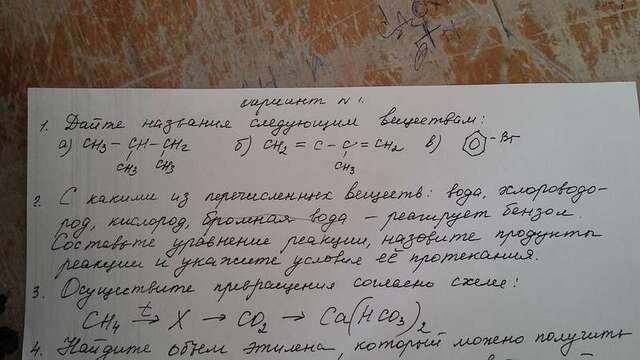 вариант N 1.
1. Дайте названия следующим веществам:
а) CH3 – CH – CH2 б) CH2 = C – C = CH2 в) – Br
CH3 CH3 CH3
2. С какими из перечисленных веществ: вода, хлороводо-
род, кислород, бромная вода – реагирует бензол.
Составьте уравнение реакции, назовите продукты
реакции и укажите условия её протекания.
3. Осуществите превращения согласно схеме:
CH4 →t X → CO2 → Ca(HCO3)2
4. Найдите объем этилена, который можно получить